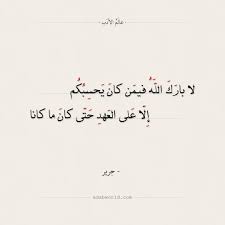 عالم الأدب
لا بارَكَ اللَّهُ فيمَن كانَ يَحسِبُكُم
إِلّا عَلى العَهدِ حَتّى كانَ ما كانا
- جرير
adabworld.com